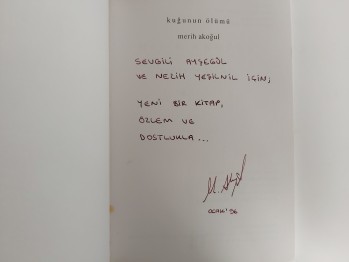 kuğunun ölümü
merih akoğul
SEVGİLİ AYŞEGÜL
VE MELİH YEŞİLNİL İÇİN;
YENİ BİR KİTAP,
ÖZLEM VE
DOSTLUKLA...
OCAK'96